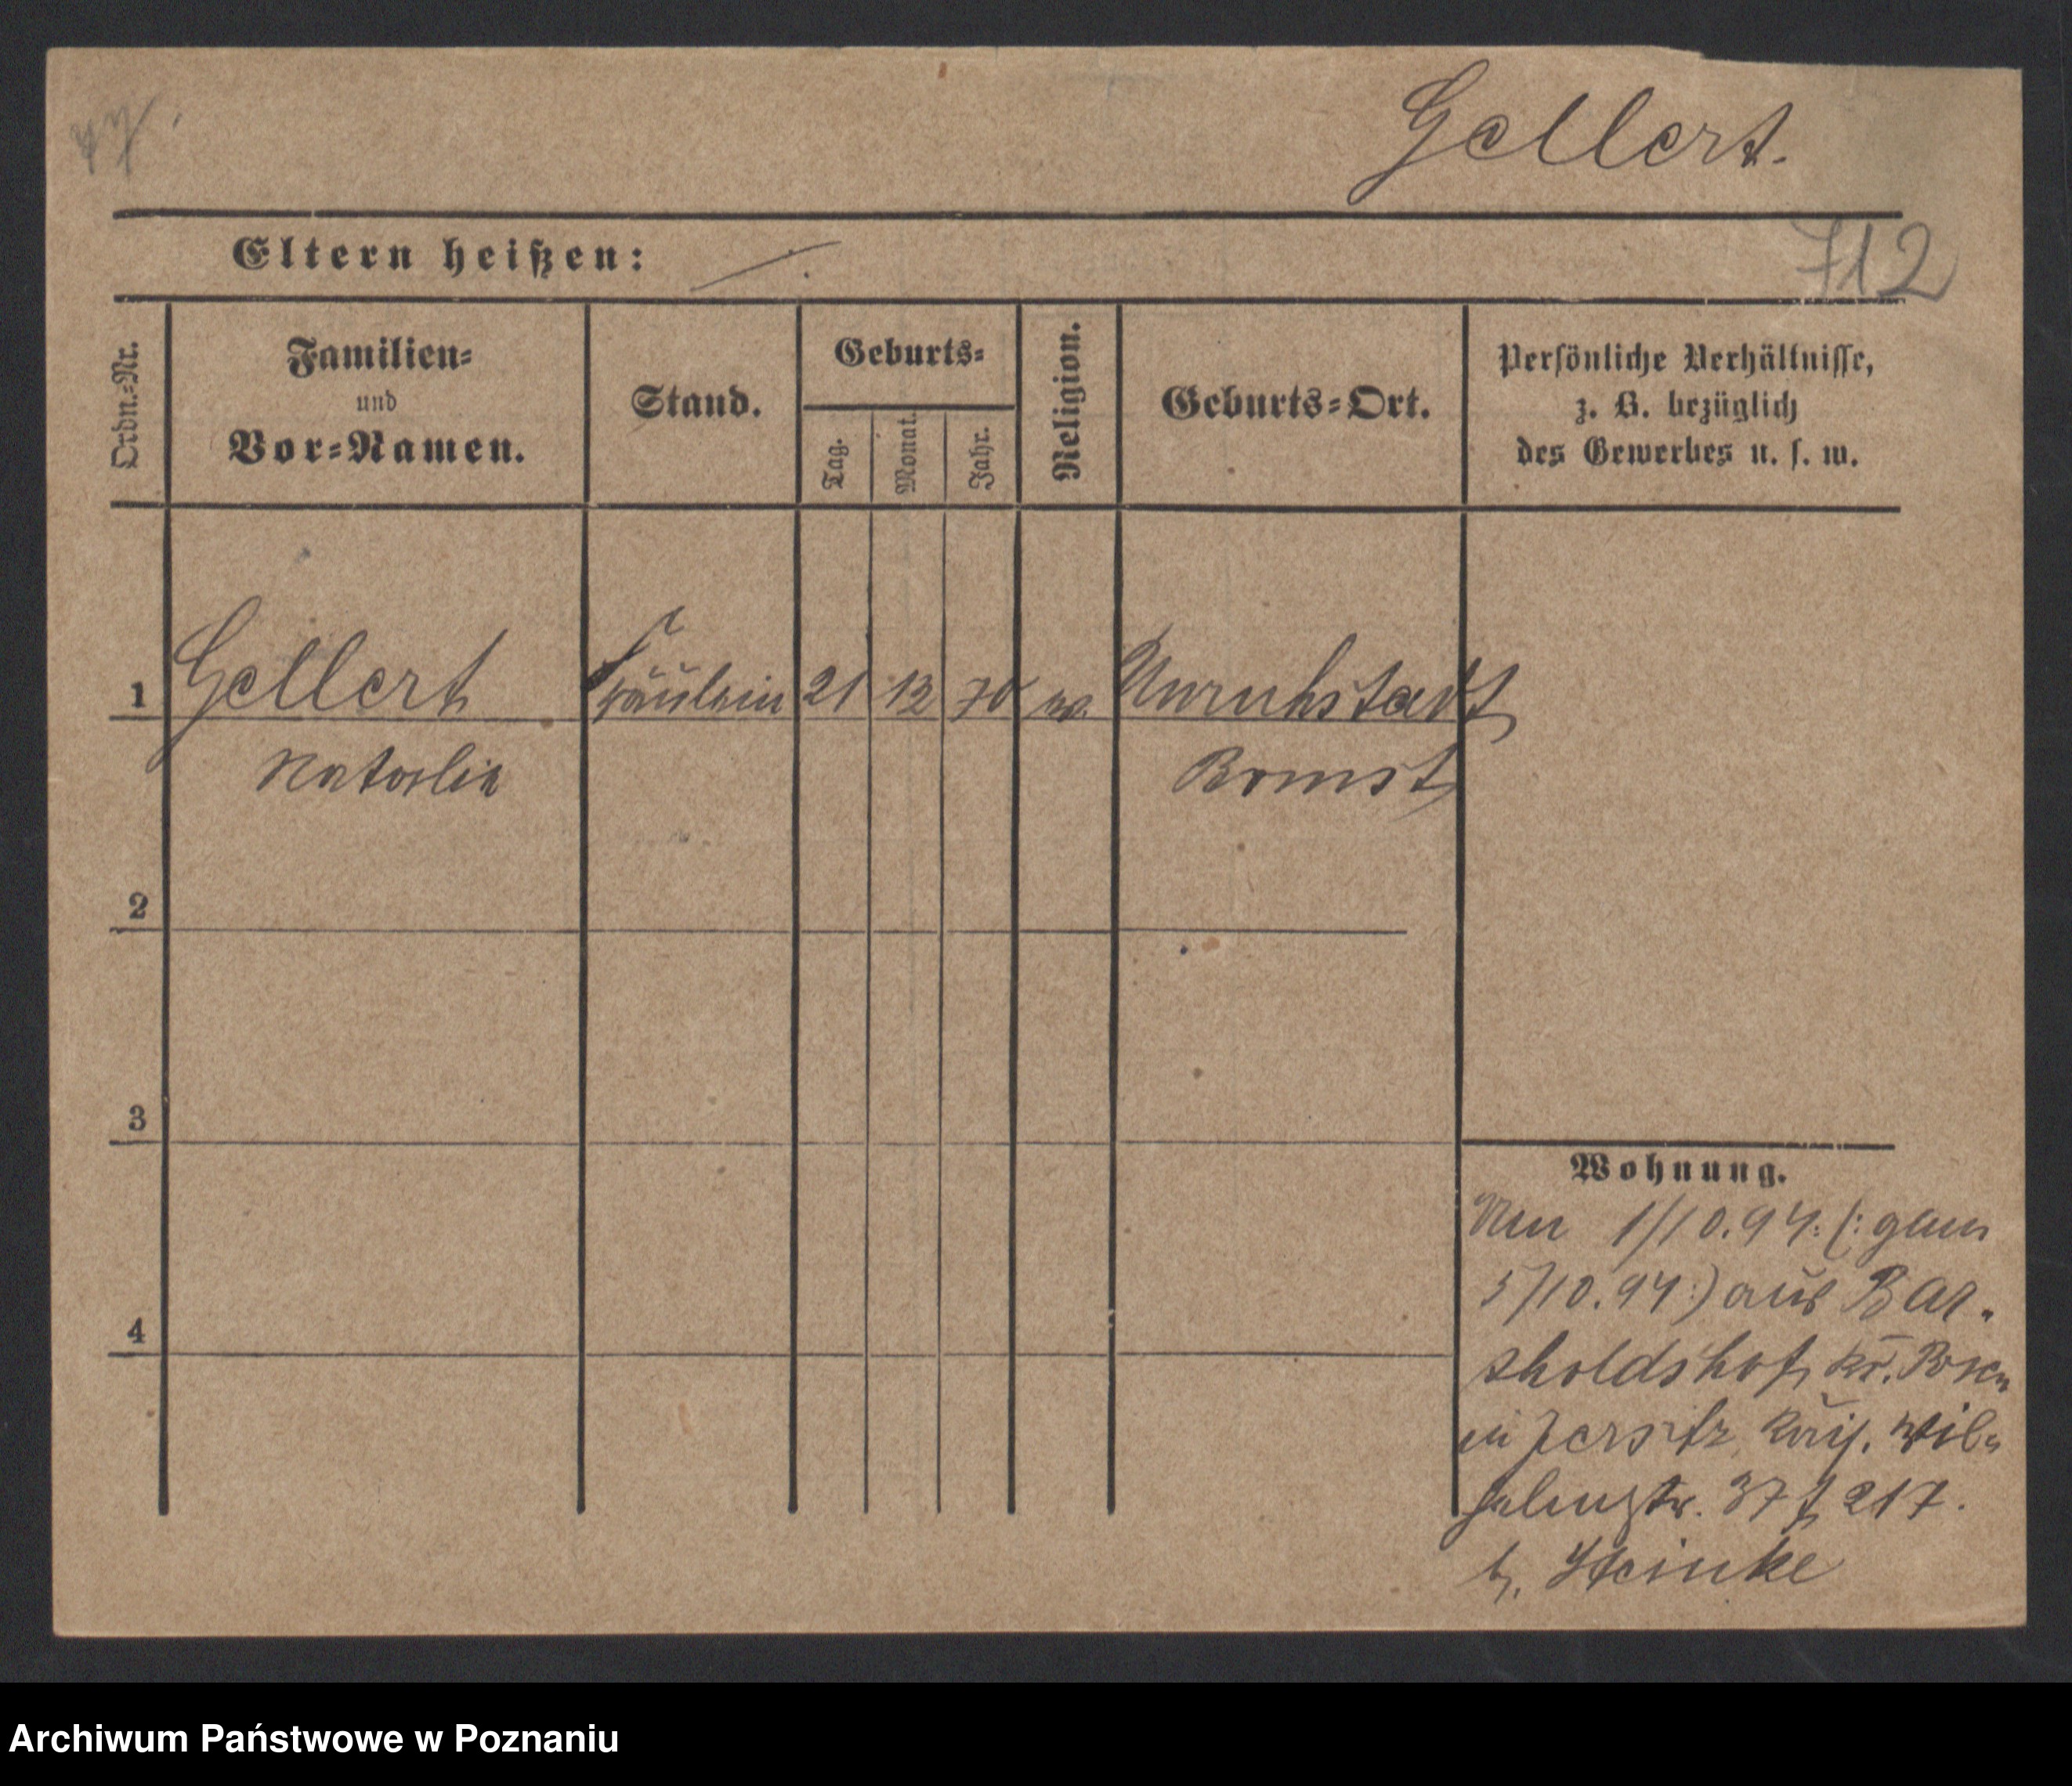 Gellert.
Eltern heißen:
712
Ordn.=Nr.
Familien=
und
Vor=Namen.
Stand.
Geburts=
Tag.
Monat.
Jahr.
Religion.
Geburts=Ort.
Persönliche Verhältnisse,
z. B. bezüglich
des Gewerbes u. s. w.
1 Gellert Fräulein 21 12 70 ev. Unruhstadt
Natalie Bomst
2
3
4
Wohnung.
1/10.94. (: gem
5/10.94 :) aus Bar-
tholdshof, Kr. Posen
in Jersitz, Kais. Wil-
helmstr. 37 f 217.
b. Steinke
Archiwum Państwowe w Poznaniu